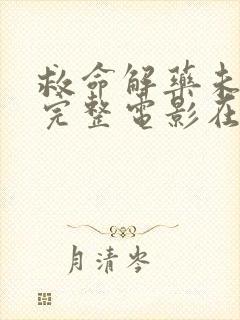 救命解药未
完整电影在
月清岑